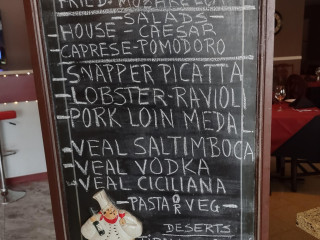 FRIED. MOZZA
-SALADS-
HOUSE - CAESAR
CAPRESE-POMODORO
SNAPPER PICATTA
LOBSTER-RAVIOLI
PORK LOIN MEDA
VEAL SALTIMBOCA
VEAL VODKA
VEAL CICILIANA
-PASTA OR VEG-
DESERTS